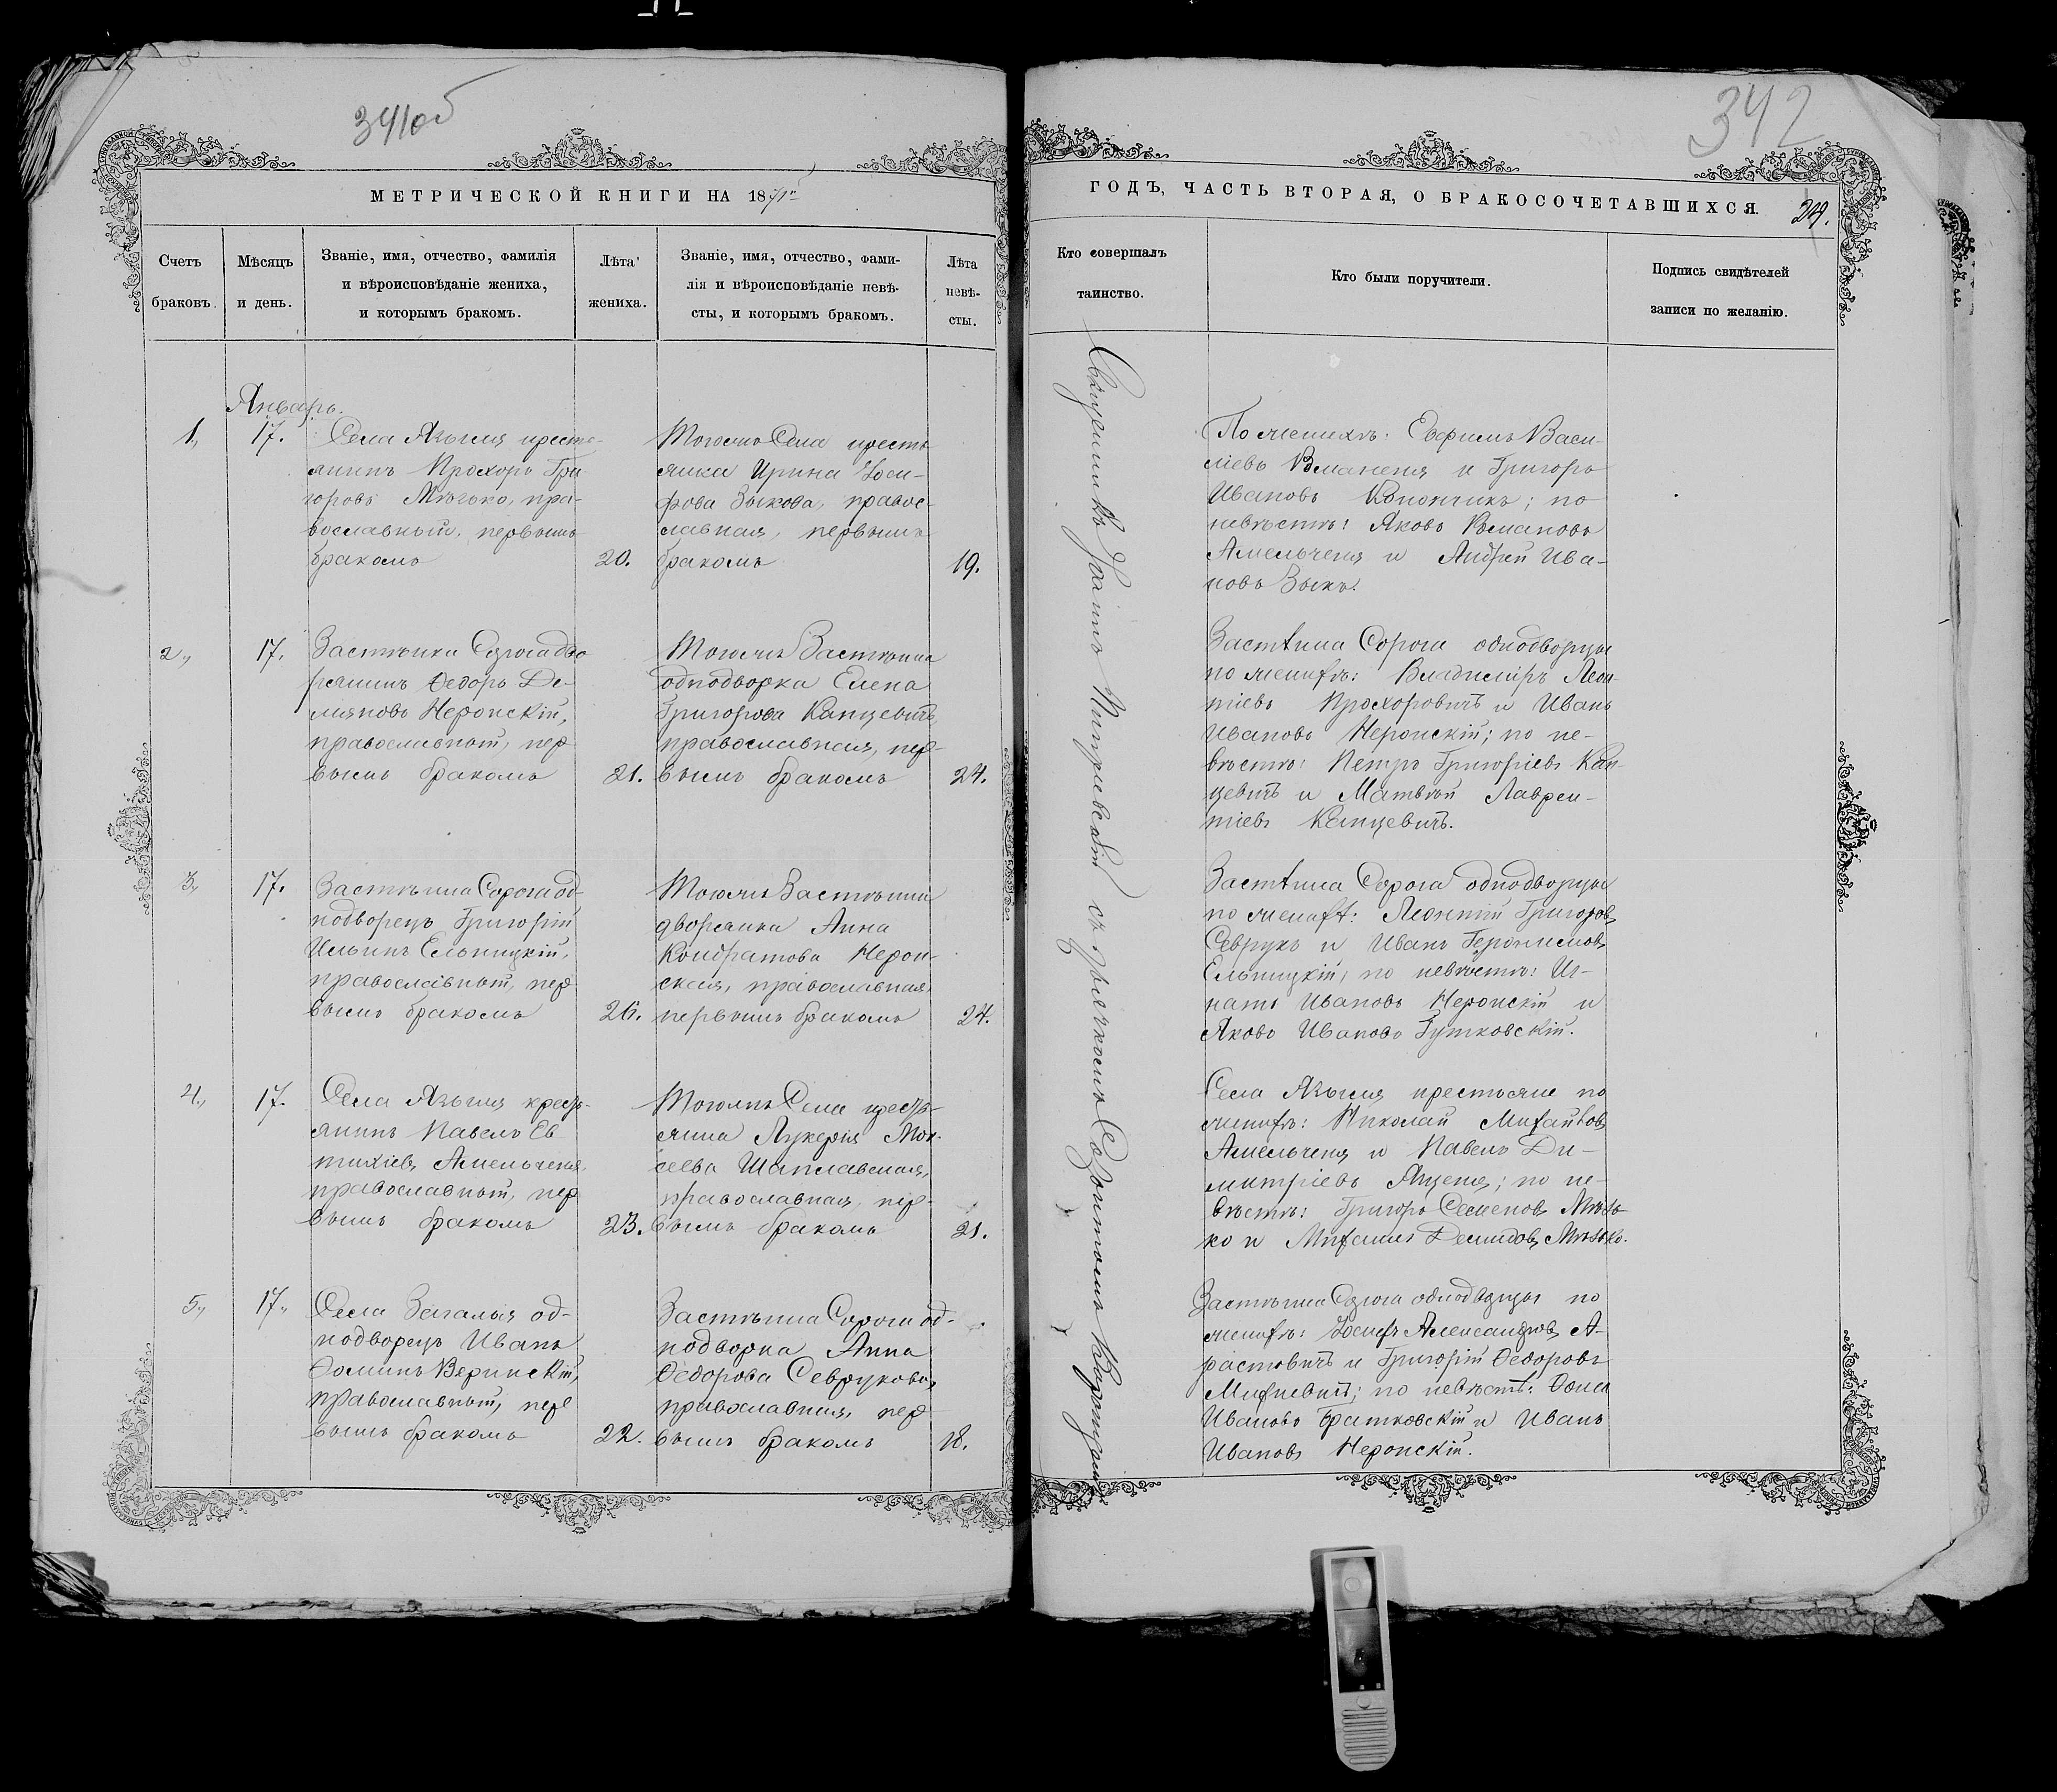 341об
МЕТРИЧЕСКОЙ КНИГИ НА 1871й
Счетъ
браковъ.
Мѣсяцъ
и день.
Званіе, имя, отчество, фамилія
и вѣроисповѣданіе жениха,
и которымъ бракомъ.
Лѣта
жениха.
Званіе, имя, отчество, фами-
лія и вѣроисповѣданіе невѣ-
сты, и которымъ бракомъ.
Лѣта
невѣ-
сты.
Январь.
1.,
17.
Села Языля кресть-
янинъ Прохоръ Гри
горовъ Мѣсько, пра-
вославный, первымъ
бракомъ
20.
Тогожъ Села кресть
янка Ирина Іоси-
фова Зыкова, правос-
лавная, первымъ
бракомъ
19.
2.,
17.
Застѣнка Сорога дво
рянинъ Ѳедоръ Де-
мяновъ Неронскій,
православный, пер
вымъ бракомъ
21.
Тогожъ Застѣнка
однодворка Елена
Григорова Канцевичъ,
православная, пер-
вымъ бракомъ
24.
3.,
17.
Застѣнка Сорога од
нодворецъ Григорій
Ильинъ Ельницкій,
православный, пер
вымъ бракомъ
26.
Тогожъ Застѣнка
дворянка Анна
Кондратова Нерон-
ская, православная,
первымъ бракомъ
24.
4.,
17.
Села Языля кресть-
янинъ Павелъ Ев
тихіевъ Амельченя,
православный, пер
вымъ бракомъ
23.
Тогожъ Села кресть-
янка Лукерія Мои-
сеева Шаплавская,
православная, пер-
вымъ бракомъ
21.
5.,
17.,
Села од-
нодворецъ Иванъ
Ѳоминъ Веринскій,
православный, пер
вымъ бракомъ
22.
Застѣнка Сороги од-
нодворка Анна
Ѳедорова Севрукова,
православная, пер
вымъ бракомъ
18.
342
ГОДЪ, ЧАСТЬ ВТОРАЯ, О БРАКОСОЧЕТАВШИХСЯ.
24.
Кто совершалъ
таинство.
Кто были поручители.
Подпись свидѣтелей
записи по желанію.
Священникъ Іоаннъ съ дьячкомъ
По женихѣ: Евфимъ Васи-
ліевъ и Григоръ
Ивановъ Конончикъ; по
невѣстѣ: Яковъ Романовъ
Амельченя и Андрей Ива-
новъ Зыкъ.
Застѣнка Сорога однодворцы
по женихѣ: Владиміръ Леон-
тіевъ Прохоровичъ и Иванъ
Ивановъ Неронскій; по не-
вѣстѣ: Петръ Григоріевъ Кан-
цевичъ и Матвѣй Лаврен-
тіевъ Канцевичъ.
Застѣнка Сорога однодворцы
по женихѣ: Леонтій Григоровъ
Севрукъ и Иванъ Геронимовъ
Ельницкій, по невѣстѣ: Иг-
натъ Ивановъ Неронскій и
Яковъ Ивановъ Гутковскій.
Села Языля крестьяне по
женихѣ: Николай Михайловъ
Амельченя и Павелъ Ди-
митріевъ Яцченя; по не-
вѣстѣ: Григоръ Семеновъ Мѣсь-
ко и Михаилъ Демидовъ Мѣсько.
Застѣнка Сорога однодворцы по
женихѣ: Іосифъ Александровъ А-
растовичъ и Григорій Ѳедоровъ
Михневичъ; по невѣстѣ: Ѳома
Ивановъ Братковскій и Иванъ
Ивановъ Неронскій.